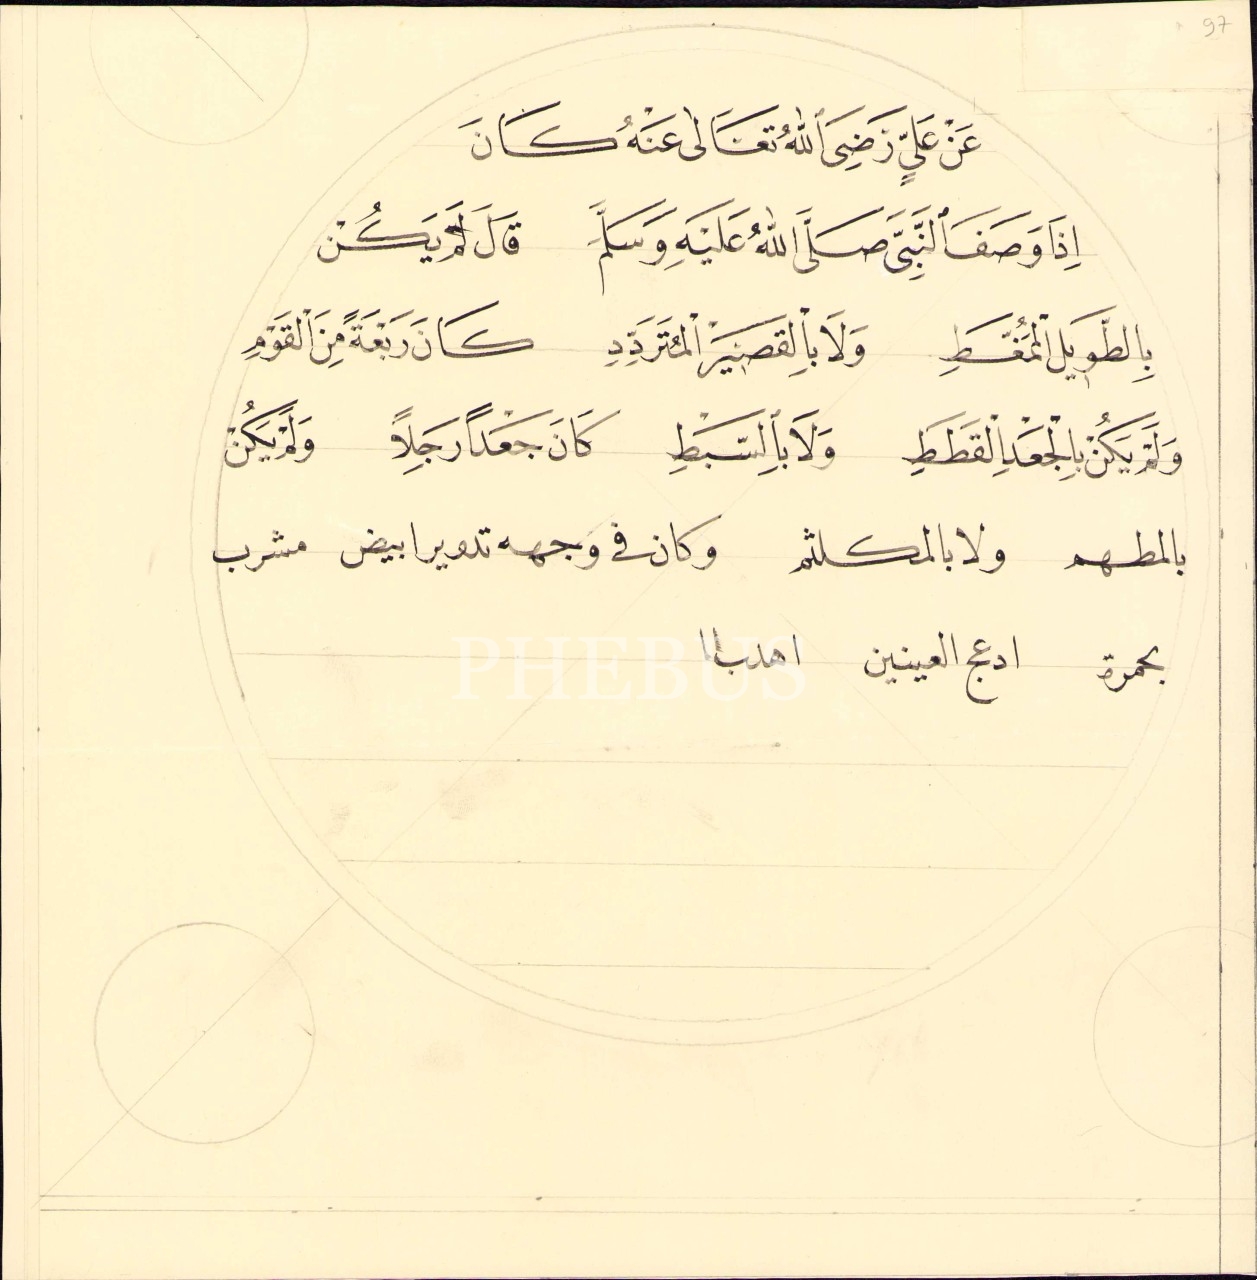 97
عَنْ عَلِيٍّ رَضِيَ ٱللّٰهُ تَعَالٰى عَنْهُ كَانَ
اِذَا وَصَفَ ٱلنَّبِيَّ صَلَّى اللّٰهُ عَلَيْهِ وَسَلَّمَ قَالَ لَمْ يَكُنْ
بِالطَّوِيلِ ٱلْمُمَّغِطِ وَلَا بِٱلْقَصِيرِ ٱلْمُتَرَدِّدِ كَانَ رَبْعَةً مِنَ ٱلْقَوْمِ
وَلَمْ يَكُنْ بِالْجَعْدِ ٱلْقَطَطِ وَلَا بِٱلسَّبْطِ كَانَ جَعْدًا رَجِلًا وَلَمْ يَكُنْ
بالمطهم ولا بالمكلثم وكان فى وجهه تدوير ابيض مشرب
بحمرة ادعج العينين اهدب ال
PHEBUS